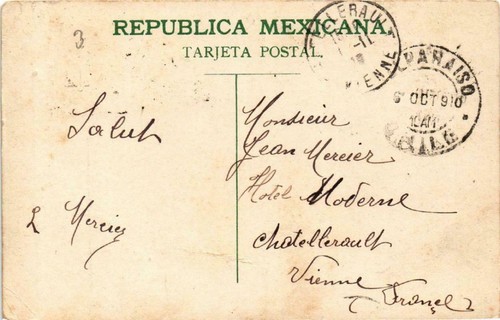 3
REPUBLICA MEXICANA.
TARJETA POSTAL.
LLERAULT
11
VIENNE
PARAISO
6 OCT 910
10AM
CHILE
Salut
L Mercier
Monsieur
Jean Mercier
Hotel Moderne
Chatellerault
Vienne
France